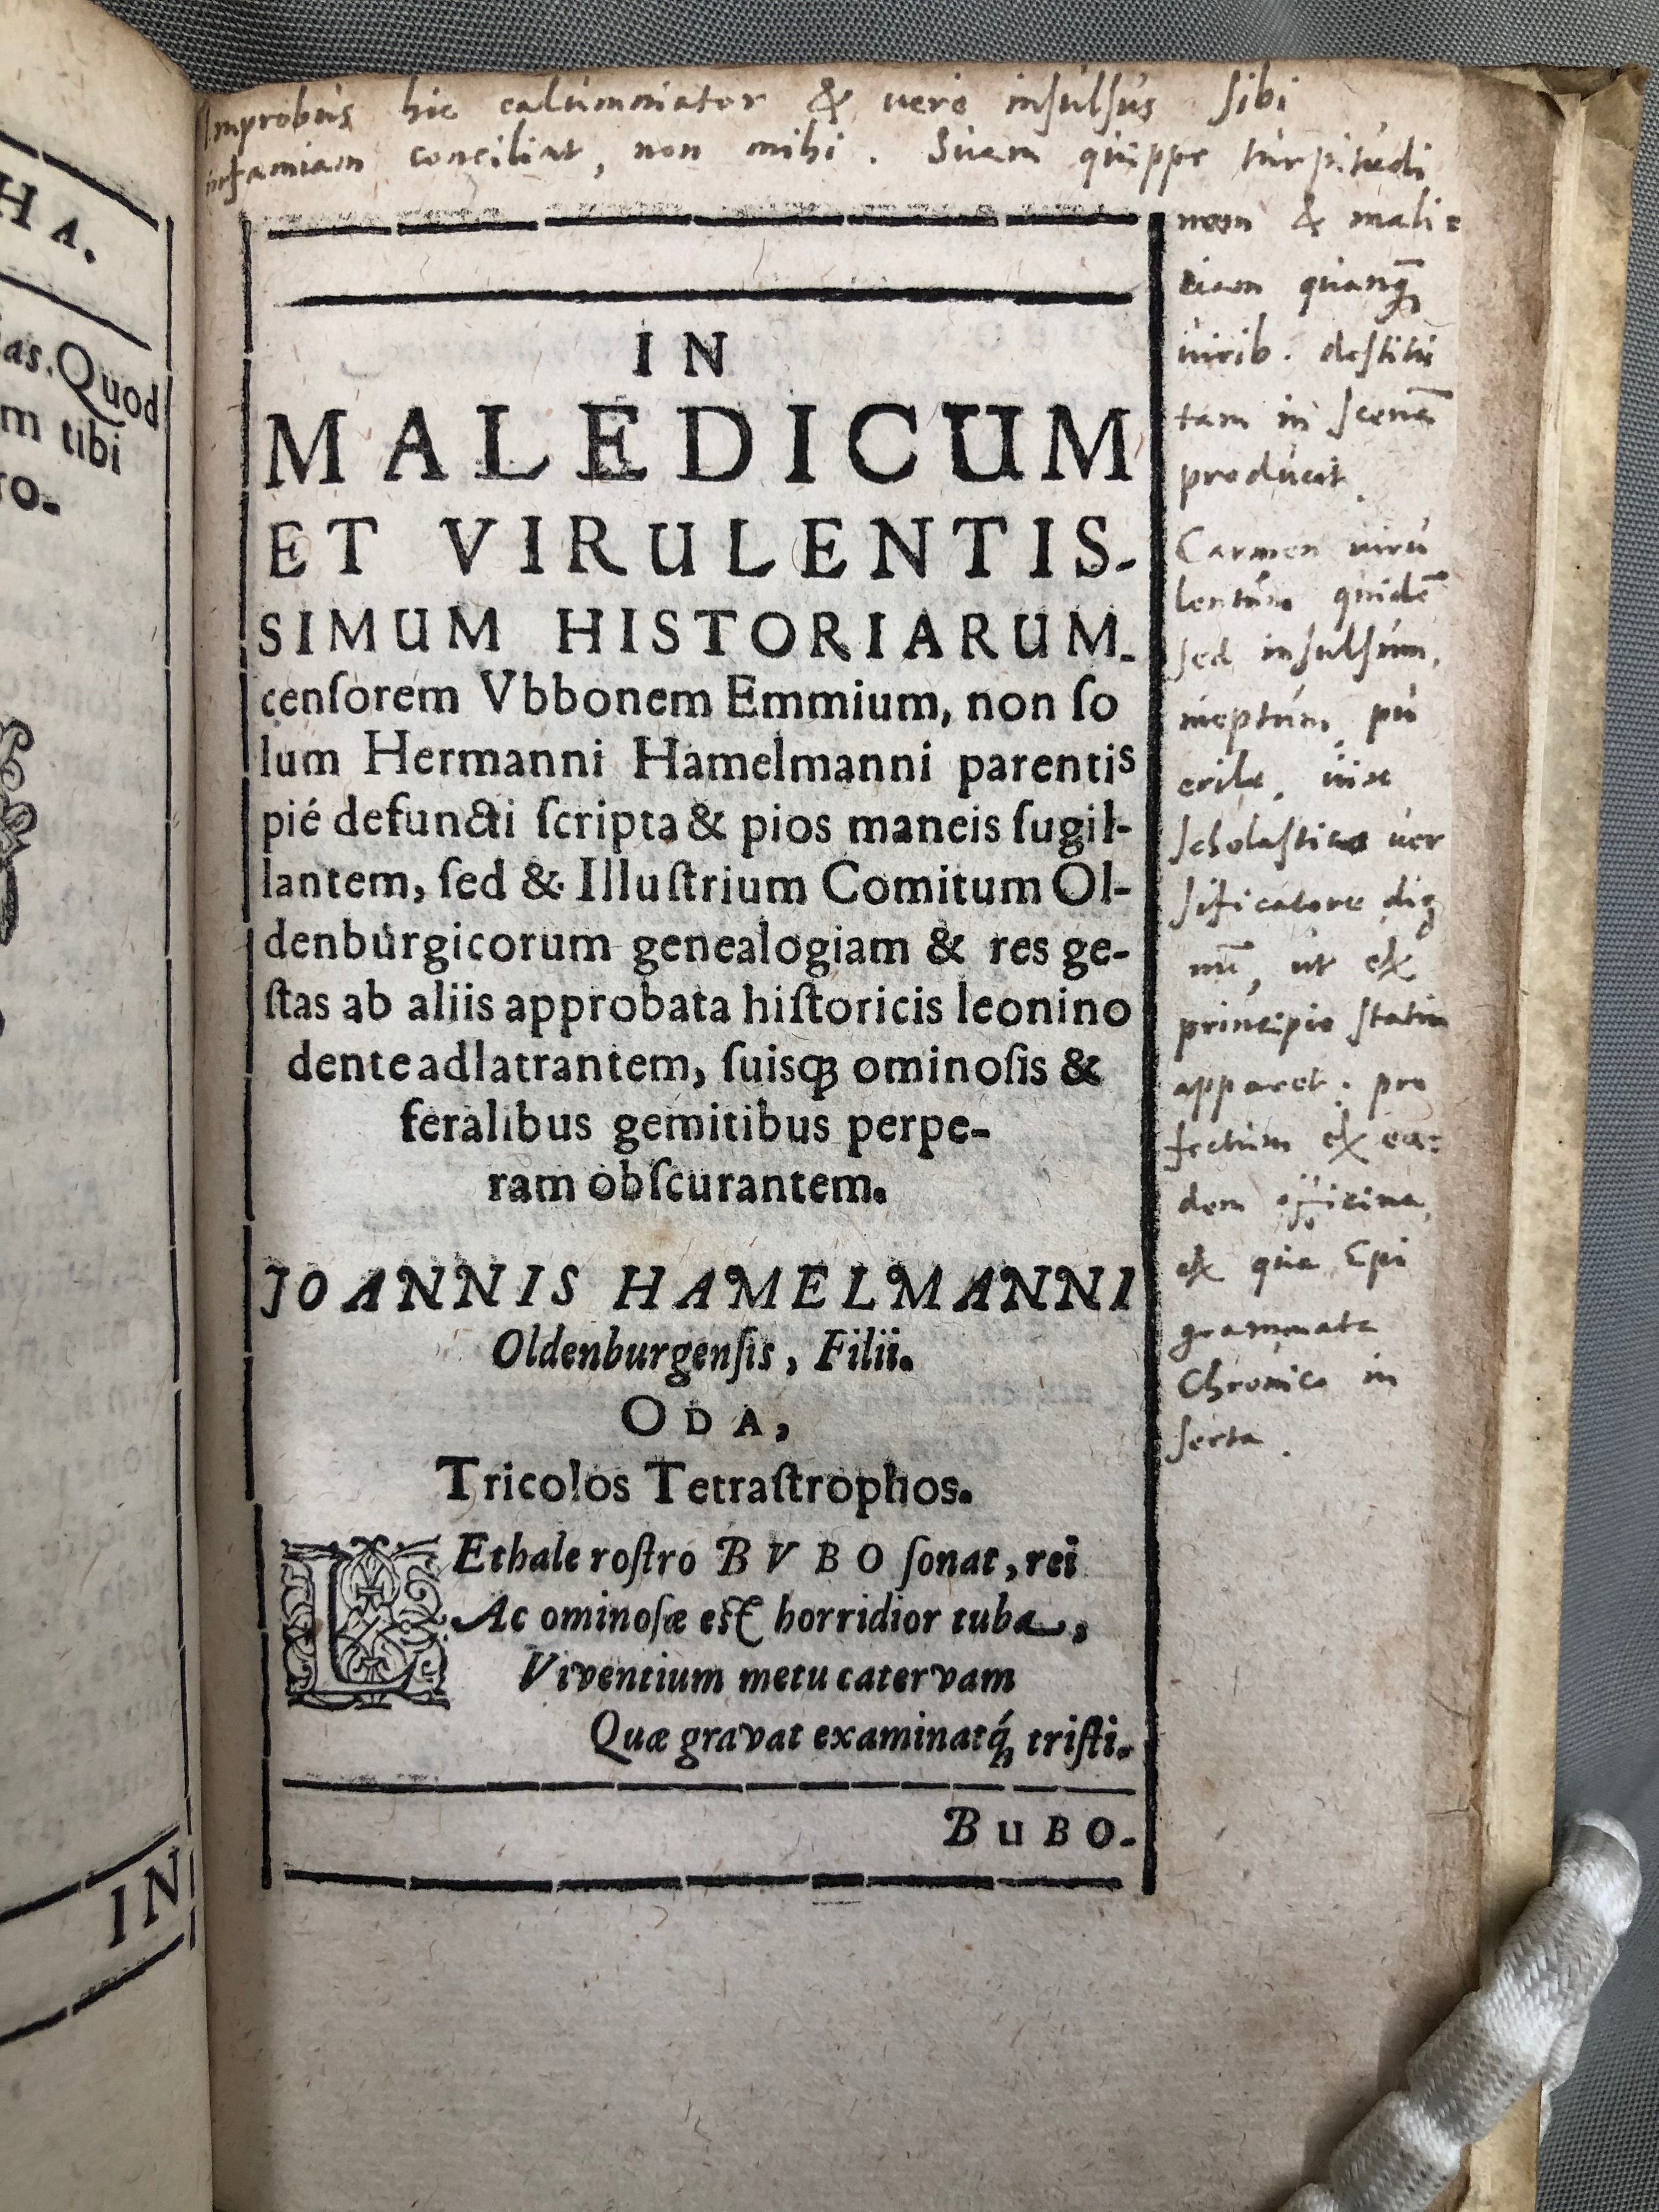 Improbus hic calumniator & vere insulsus sibi
infamiam conciliat, non mihi. Suam quippe turpitudi
nem & mali=
tiam quanq̃
virib. destitu
tam in scenā
producit.
Carmen viru
lentum quidē
sed insulsum,
ineptum, pu
erile, vixe
scholastico ver
sificatore dig
nū, ut ex
principio statim
apparet: pro
fectum ex ea=
dem officina,
ex qua Epi
grammata
Chronico in
serta.
HA.
as. Quod
m tibi
ro-
IN
IN
MALEDICUM
ET VIRULENTIS-
SIMUM HISTORIARUM-
cenſorem Vbbonem Emmium, non ſo
lum Hermanni Hamelmanni parentis
pié defuncti ſcripta & pios maneis ſugil-
lantem, ſed & Illuſtrium Comitum Ol-
denburgicorum genealogiam & res ge-
ſtas ab aliis approbata hiſtoricis leonino
dente adlatrantem, ſuisq́; ominoſis &
feralibus gemitibus perpe-
ram obſcurantem.
JOANNIS HAMELMANNI
Oldenburgenſis, Filii.
ODA,
Tricolos Tetraſtrophos.
LEthale roſtro BVBO ſonat, rei
Ac ominoſæ eſt horridior tuba,
Viventium metu catervam
Quæ gravat examinatq́; triſti.
BUBO-